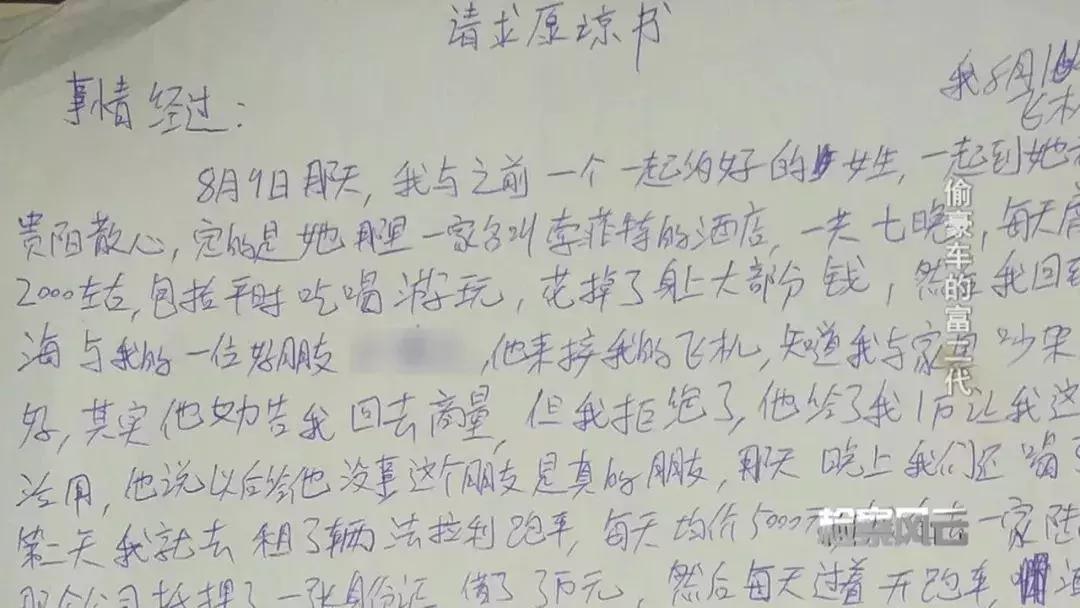 请求原谅书
我8月1
飞机
事情经过：
8月9日那天，我与之前一个一起约好的女生，一起到她
贵阳散心，定的是她那里一家名叫索菲特的酒店，一共七晚，每天
2000左右，包括平时吃喝游玩，花掉了身上大部分钱，然后我回到
海与我的一位好朋友，他来接我的飞机，知道我与家里吵架
好，其实他劝告我回去商量，但我拒绝了，他给了我1万让我这
活用，他说以后给他没事这个朋友是真的朋友，那天晚上我们还喝了
第二天我就去租了辆法拉利跑车，每天均价5000 一家
那个公司抵押了一张身份证借了3万元，然后每天过着开跑车
偷豪车的富二代
检察风云